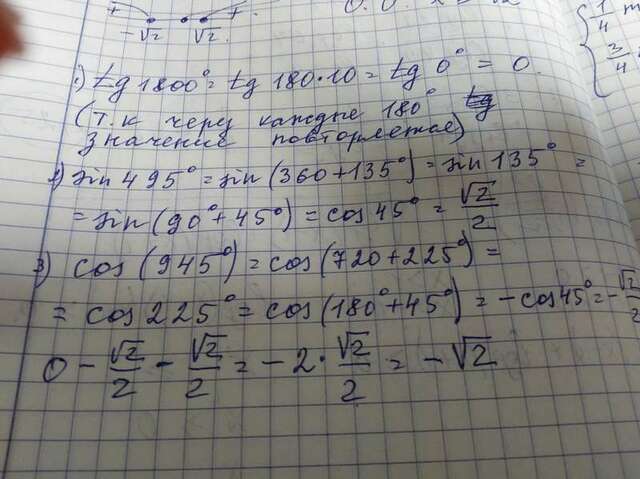 + +
-√2 √2
1/4
3/4
tg 1800° = tg 180·10 = tg 0° = 0.
(т.к через каждые 180° tg
значение повторяется)
sin 495° = sin(360+135°) = sin 135° =
= sin(90°+45°) = cos 45° = √2/2
3) cos(945°) = cos(720+225°) =
= cos 225° = cos(180°+45°) = -cos45° = -√2/2
0 - √2/2 - √2/2 = -2·√2/2 = -√2